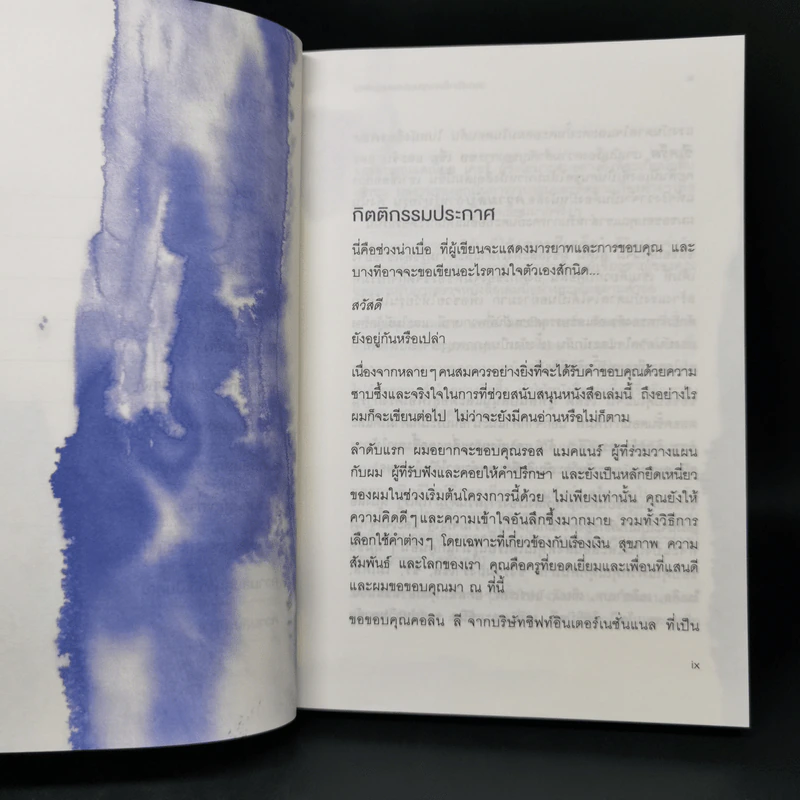 กิตติกรรมประกาศ
นี่คือช่วงน่าเบื่อ ที่ผู้เขียนจะแสดงมารยาทและการขอบคุณ และ
บางทีอาจจะขอเขียนอะไรตามใจตัวเองสักนิด...
สวัสดี
ยังอยู่กันหรือเปล่า
เนื่องจากหลายๆ คนสมควรอย่างยิ่งที่จะได้รับคำขอบคุณด้วยความ
ซาบซึ้งและจริงใจในการที่ช่วยสนับสนุนหนังสือเล่มนี้ ถึงอย่างไร
ผมก็จะเขียนต่อไป ไม่ว่าจะยังมีคนอ่านหรือไม่ก็ตาม
ลำดับแรก ผมอยากจะขอบคุณรอส แมคแนร์ ผู้ที่ร่วมวางแผน
กับผม ผู้ที่รับฟังและคอยให้คำปรึกษา และยังเป็นหลักยึดเหนี่ยว
ของผมในช่วงเริ่มต้นโครงการนี้ด้วย ไม่เพียงเท่านั้น คุณยังให้
ความคิดดีๆ และความเข้าใจอันลึกซึ้งมากมาย รวมทั้งวิธีการ
เลือกใช้คำต่างๆ โดยเฉพาะที่เกี่ยวข้องกับเรื่องเงิน สุขภาพ ความ
สัมพันธ์ และโลกของเรา คุณคือครูที่ยอดเยี่ยมและเพื่อนที่แสนดี
และผมขอขอบคุณมา ณ ที่นี้
ขอขอบคุณคอลิน ลี จากบริษัทชิฟท์อินเตอร์เนชั่นแนล ที่เป็น
ix